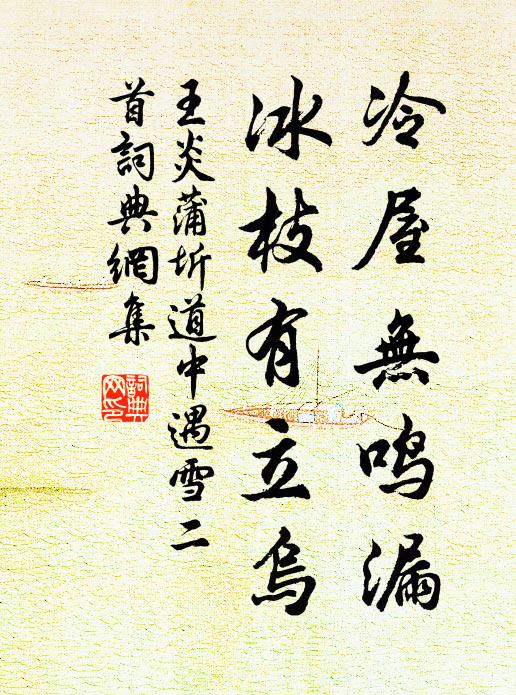 冷屋無鳴漏
冰枝有立烏
王炎蒲圻道中遇雪二
首詞典網集
詞典
网印